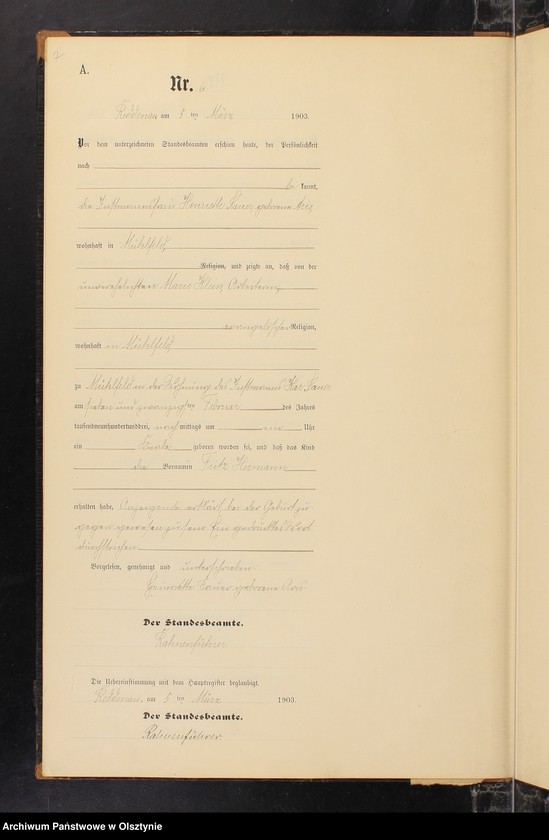 7
A.
Nr. 6
Reddenau am 5 ten März 1903.
Vor dem unterzeichneten Standesbeamten erschien heute, der Persönlichkeit
nach
be kannt,
die Instmannsfrau Henriette Sauer geborene
wohnhaft in Mühlfeld,
Religion, und zeigte an, daß von der
unverehelichten Marie Klein, Arbeiterin,
evangelischer Religion,
wohnhaft in Mühlfeld
zu Mühlfeld in der Wohnung des Instmanns Sauer
am sieben und zwanzigsten Februar des Jahres
tausendneunhundertunddrei, nach mittags um ein Uhr
ein Knabe geboren worden sei, und daß das Kind
die Vornamen Fritz Hermann
erhalten habe. Anzeigende erklärt, bei der Geburt zu-
gegen gewesen zu sein. Ein gedrucktes Wort
durchstrichen.
Vorgelesen, genehmigt und unterschrieben
Henriette Sauer geborene
Der Standesbeamte.
Rahnenführer
Die Uebereinstimmung mit dem Hauptregister beglaubigt.
Reddenau, am 5 ten März 1903.
Der Standesbeamte.
Rahnenführer.
Archiwum Państwowe w Olsztynie